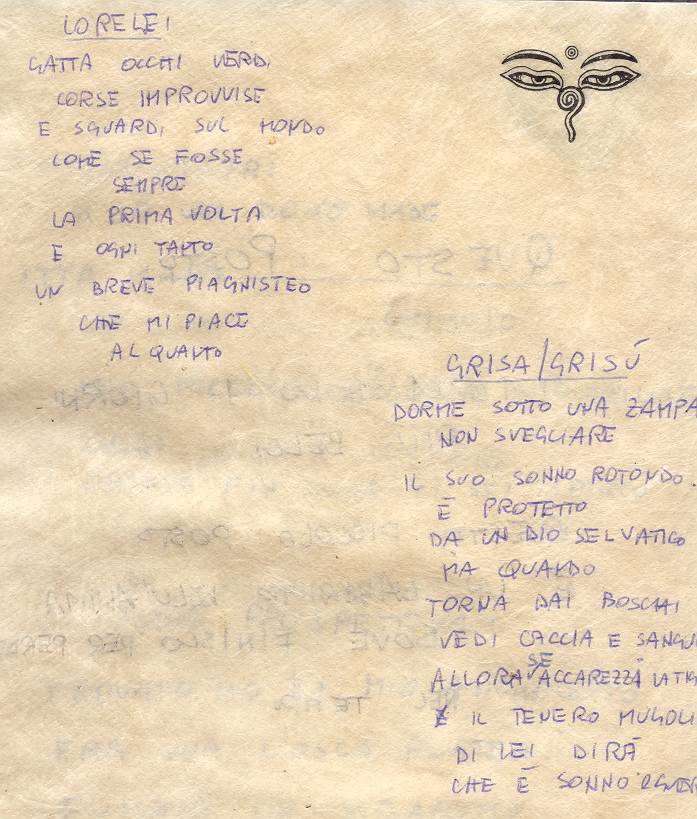 LORELEI
GATTA OCCHI VERDI
CORSE IMPROVVISE
E SGUARDI SUL MONDO
COME SE FOSSE
SEMPRE
LA PRIMA VOLTA
E OGNI TANTO
UN BREVE PIAGNISTEO
CHE MI PIACE
ALQUANTO
GRISA/GRISÙ
DORME SOTTO UNA ZAMPA
NON SVEGLIARE
IL SUO SONNO ROTONDO.
È PROTETTO
DA UN DIO SELVATICO
MA QUANDO
TORNA DAI BOSCHI
VEDI CACCIA E SANGU
ALLORA SE ACCAREZZA
IL TENERO MUGOLI
DI LEI DIRÀ
CHE È SONNO